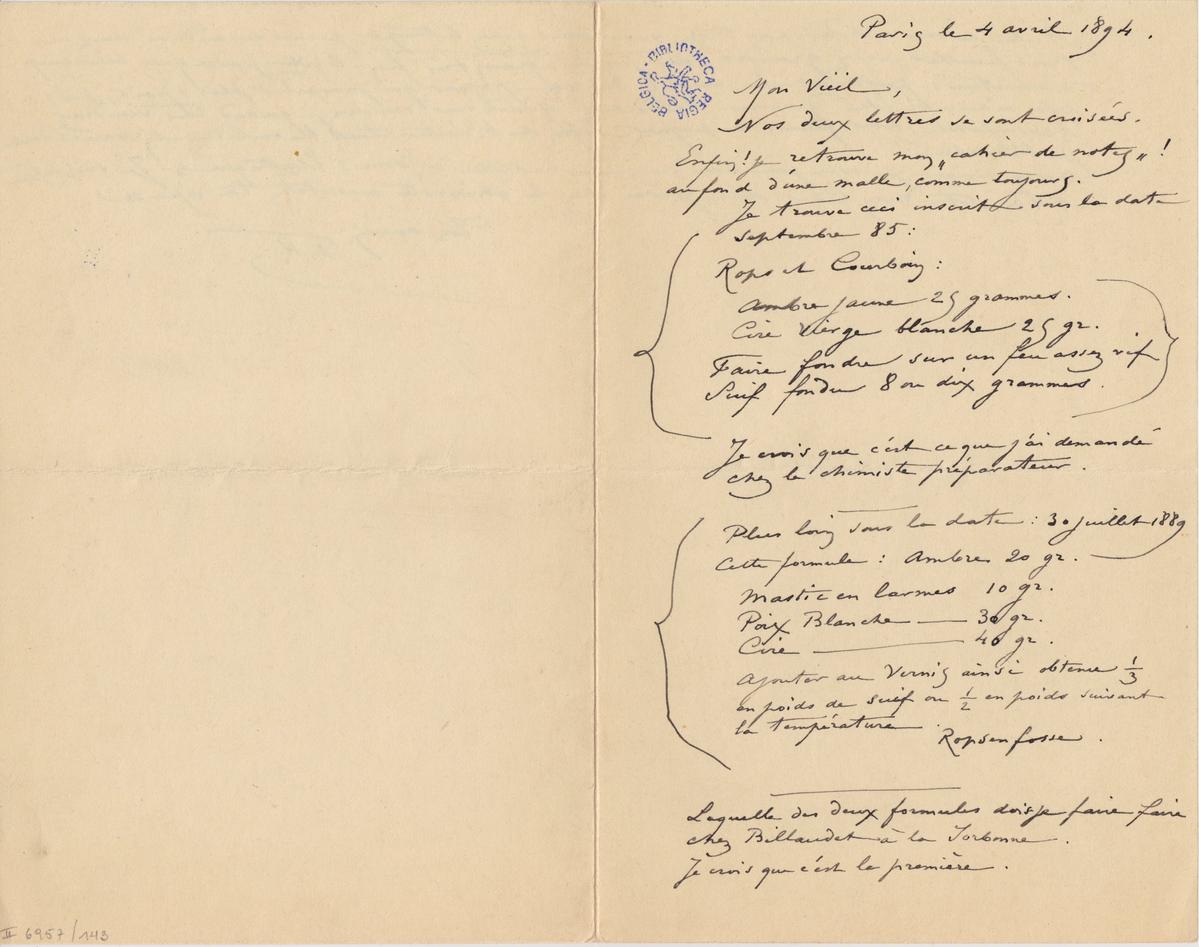 Paris le 4 avril 1894.
BIBLIOTHECA REGIA BELGICA
Mon Vieil,
Nos deux lettres se sont croisées.
Enfin! je retrouve mon „cahier de notes" !
au fond d'une malle, comme toujours.
Je trouve ceci inscrit sous la date
septembre 85:
Rops et Courboin:
Ambre jaune 25 grammes.
Cire vierge blanche 25 gr.
Faire fondre sur un feu assez vif
Suif fondu 8 ou dix grammes.
Je crois que c'est ce que j'ai demandé
chez le chimiste préparateur.
Plus loin sous la date: 30 juillet 1889
Cette formule: Ambre 20 gr.
Mastic en larmes 10 gr.
Poix Blanche — 30 gr.
Cire — 40 gr.
Ajouter au Vernis ainsi obtenu 1/3
en poids de suif ou 1/2 en poids suivant
la température.
Ropsenfosse.
Laquelle des deux formules dois je faire faire
chez Billaudet à la Sorbonne.
Je crois que c'est la première.
II 6957/143